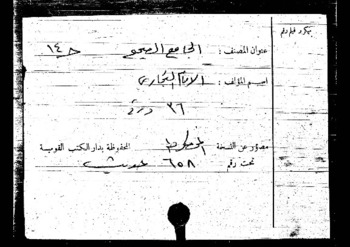 ميكروفيلم رقم
عنوان المصنف : الجامع الصحيح حـ ١٤
اسم المؤلف : الامام البخارى
٣٦ ورقة
مصور عن النسخة المحفوظة بدار الكتب القومية
تحت رقم ٦٥٨ حديث